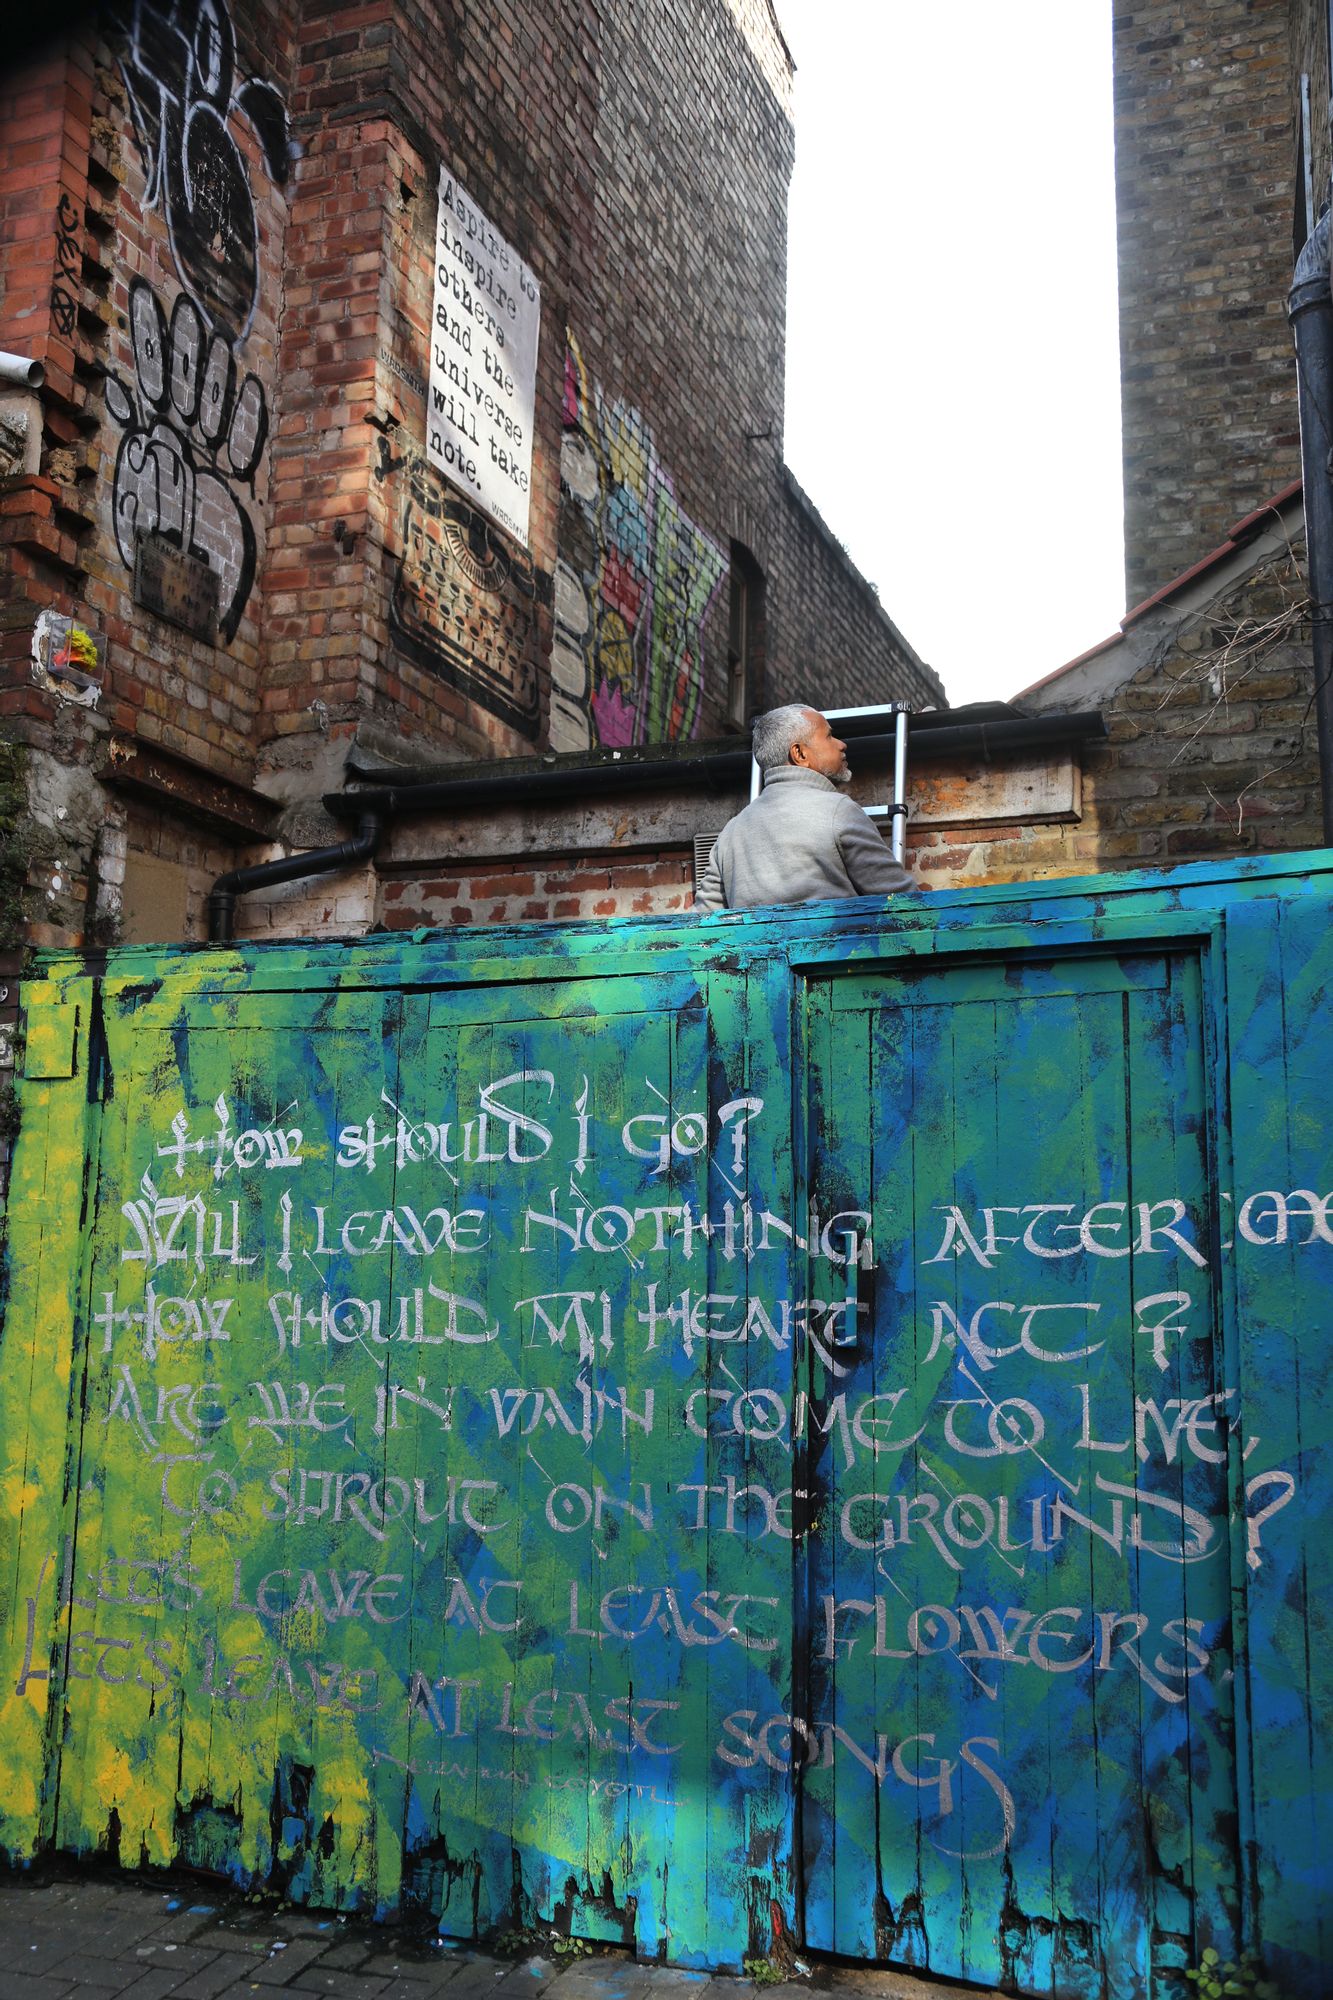 Aspire to
inspire
others
and the
universe
will take
note.
WRDSMTH
WRDSMTH
HOW SHOULD I GO?
WILL I LEAVE NOTHING AFTER ME
HOW SHOULD MI HEART ACT?
ARE WE IN VAIN COME TO LIVE,
TO SPROUT ON THE GROUND?
LET'S LEAVE AT LEAST FLOWERS,
LET'S LEAVE AT LEAST SONGS